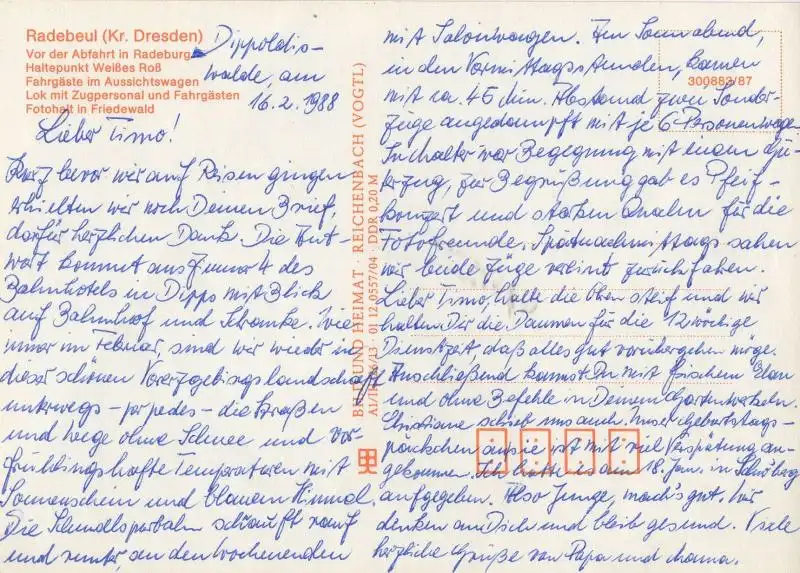 Radebeul (Kr. Dresden)
Vor der Abfahrt in Radeburg
Haltepunkt Weißes Roß
Fahrgäste im Aussichtswagen
Lok mit Zugpersonal und Fahrgästen
Fotohalt in Friedewald
Dippoldis-
walde, am
16.2.1988
Lieber Timo!
Kurz bevor wir auf Reisen gingen
erhielten wir noch Deinen Brief,
dafür herzlichen Dank. Die Ant-
wort kommt aus Zimmer 4 des
Bahnhotels in Dipps mit Blick
auf Bahnhof und Schranke. Wie
immer im Februar, sind wir wieder in
dieser schönen Vorerzgebirgslandschaft
unterwegs - per pedes - die Straßen
und Wege ohne Schnee und vor-
frühlingshafte Temperaturen mit
Sonnenschein und blauem Himmel.
Die Schmalspurbahn schnauft rauf
und runter, an den Wochenenden
BILD UND HEIMAT · REICHENBACH (VOGTL)
01 12 0557/04 · DDR 0,20 M
300883/87
mit Salonwagen. Am Sonnabend,
in den Vormittagsstunden, kamen
mit ca. 45 Min. Abstand zwei Sonder-
züge angedampft mit je 6 Personenwagen
In Malter war Begegnung mit einem Gü-
terzug, zur Begrüßung gab es Pfeif-
konzert und starken Qualm für die
Fotofreunde. Spätnachmittags sahen
wir beide Züge vereint zurückfahren.
Lieber Timo, halte die Ohren steif und wir
halten Dir die Daumen für die 12 wöchige
Dienstzeit, daß alles gut vorübergehen möge.
Anschließend kannst Du mit frischem Elan
und ohne Befehle in Deinem Garten werkeln.
Christiane schrieb uns auch. Unser Geburtstags-
päckchen an sie ist mit viel Verspätung an-
gekommen. Ich hatte es am 18. Jan. in
aufgegeben. Also Junge, mach's gut. Wir
denken an Dich und bleib gesund. Viele
herzliche Grüße von Papa und Mama.